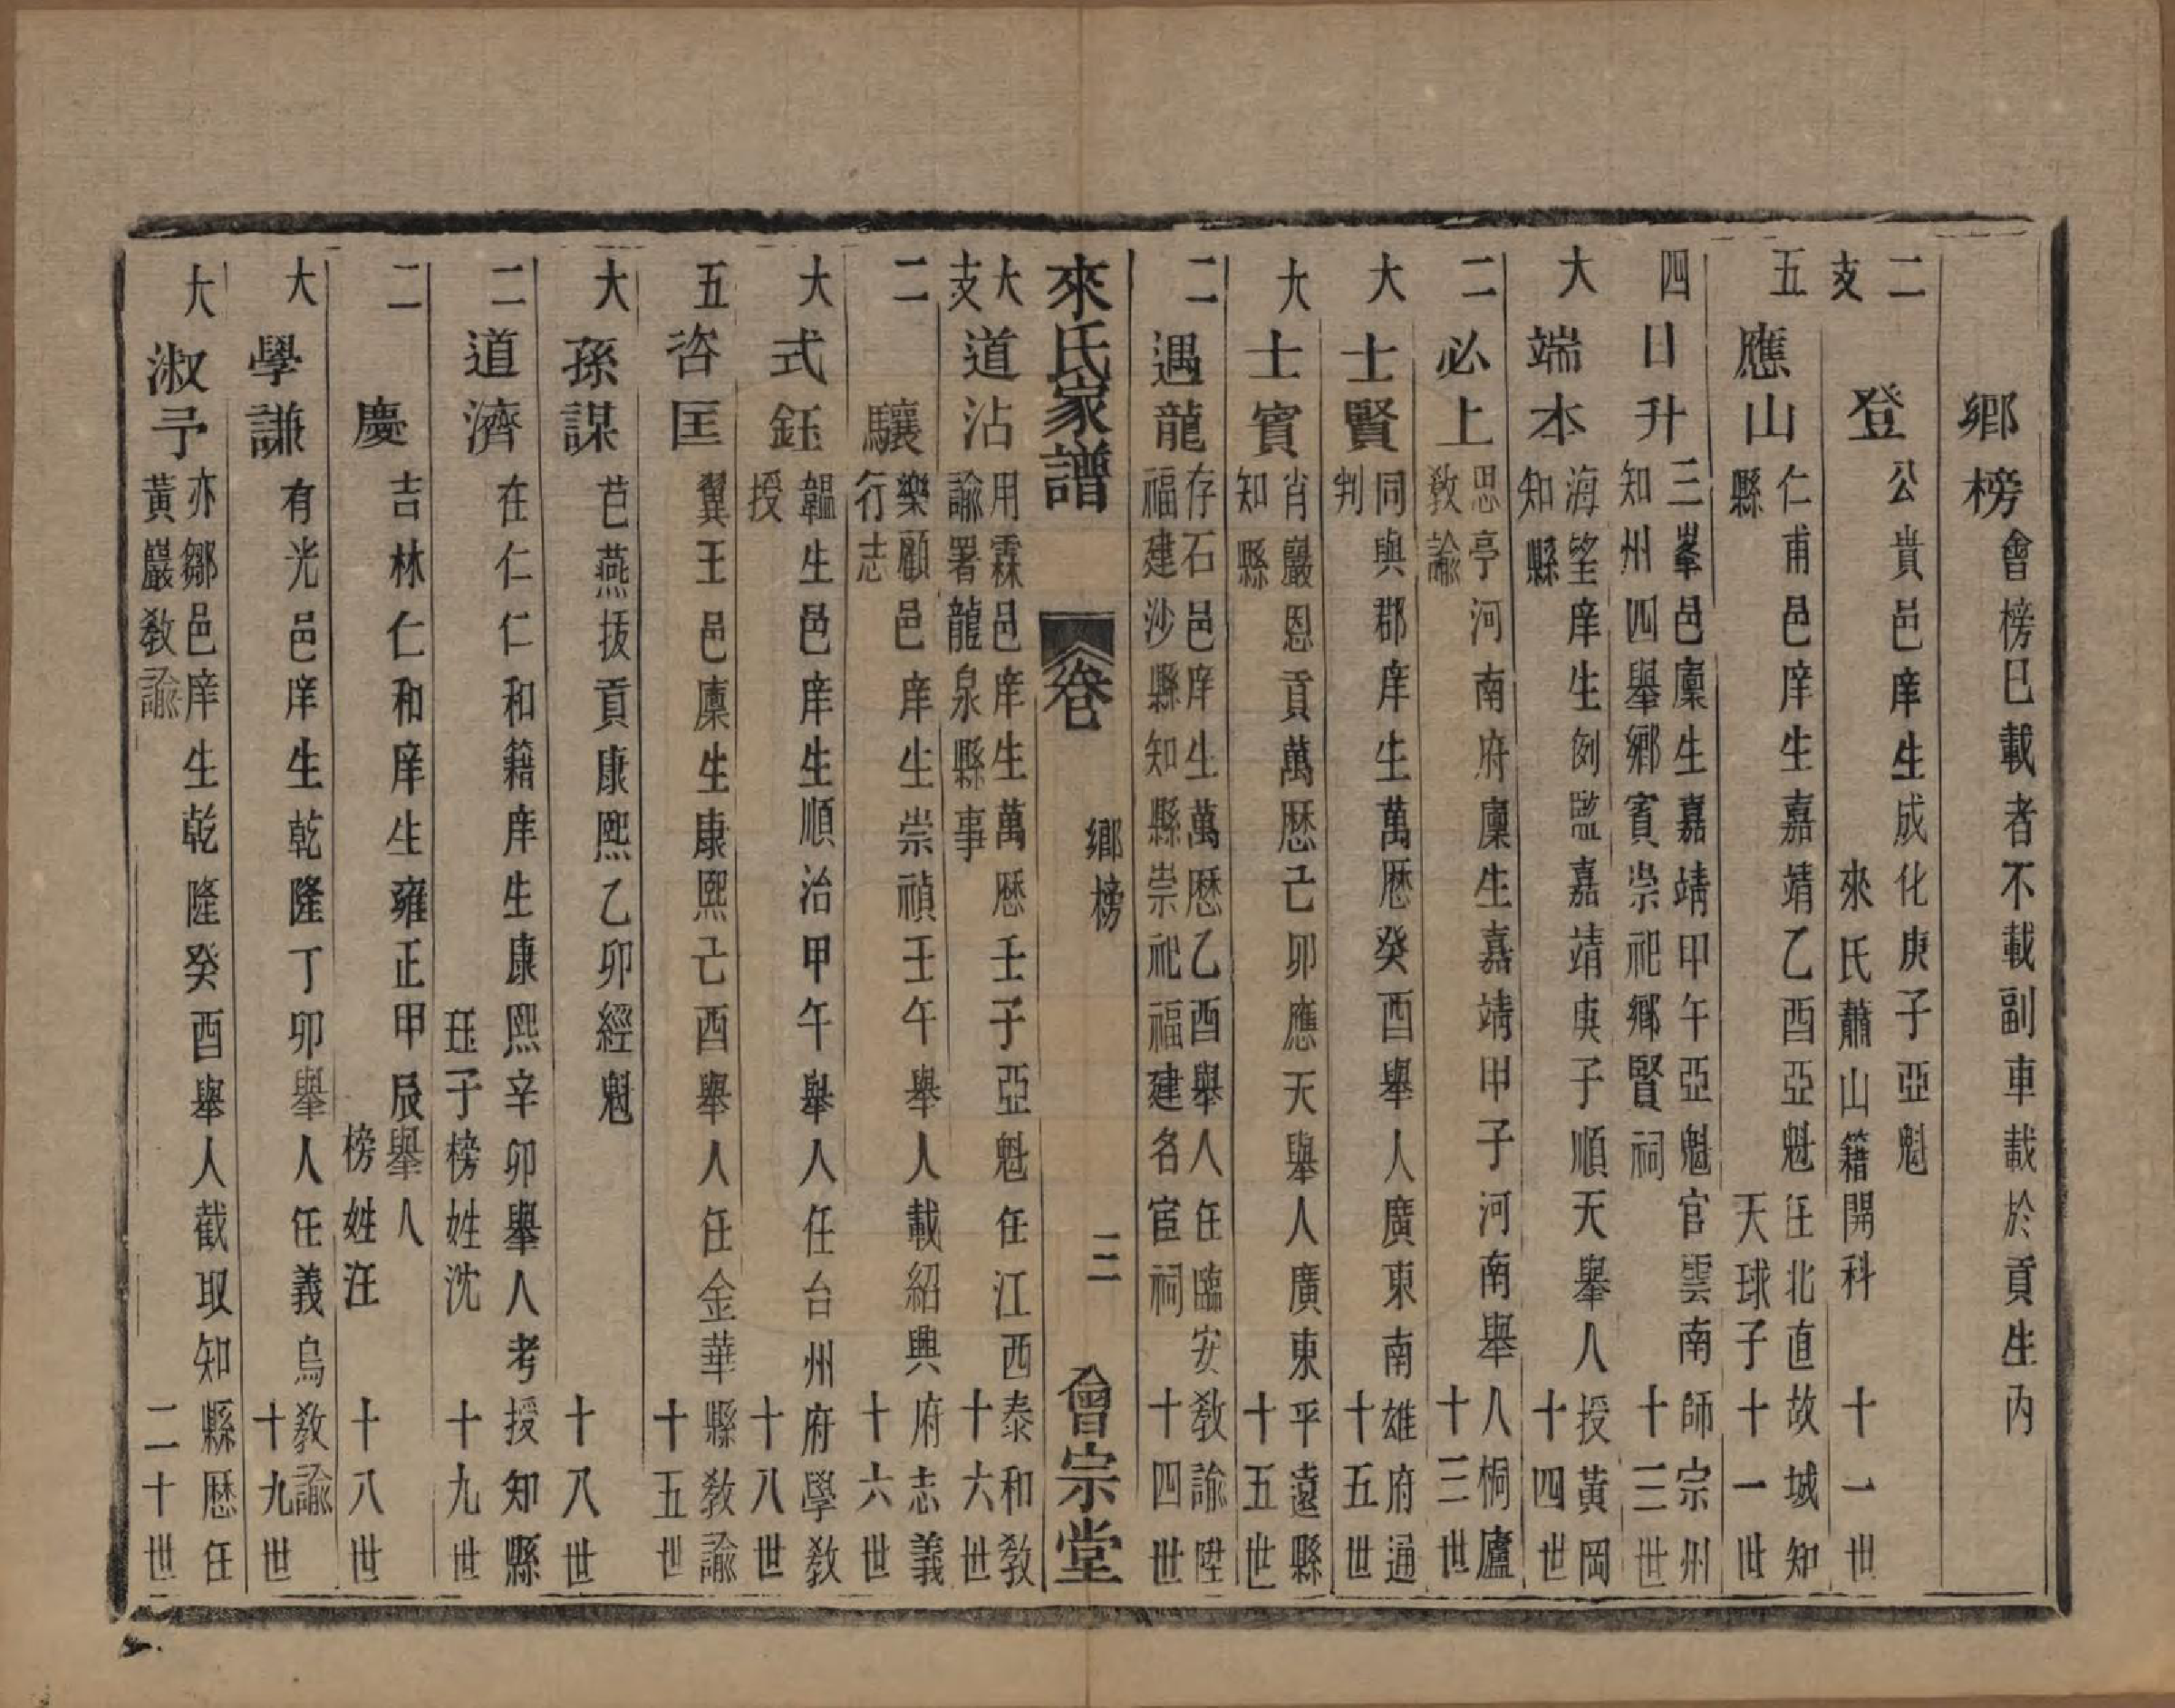 鄉榜會榜已載者不載副車載於貢生內
二支 登 公貴邑庠生成化庚子亞魁
來氏蕭山籍開科 十一世
五 應山 仁甫邑庠生嘉靖乙酉亞魁任北直故城知
縣 天球子 十一世
四 日升 三峯邑廩生嘉靖甲午亞魁官雲南師宗州
知州四舉鄉賓崇祀鄉賢祠 十三世
大 端本 海望庠生例監嘉靖庚子順天舉人授黃岡
知縣 十四世
二 必上 思亭河南府廩生嘉靖甲子河南舉人桐廬
教諭 十三世
大 士賢 同與郡庠生萬歷癸酉舉人廣東南雄府通
判 十五世
大 士賓 肖巖恩貢萬歷己卯應天舉人廣東平遠縣
知縣 十五世
二 遇龍 存石邑庠生萬歷乙酉舉人任臨安教諭陞
福建沙縣知縣崇祀福建名宦祠 十四世
來氏家譜 卷 鄉榜 三 會宗堂
大支 道沾 用霖邑庠生萬歷壬子亞魁任江西泰和教
諭署龍泉縣事 十六世
二 驤 樂顧邑庠生崇禎壬午舉人載紹興府志義
行志 十六世
大 式鈺 韞生邑庠生順治甲午舉人任台州府學教
授 十八世
五 咨匡 翼王邑廩生康熙己酉舉人任金華縣教諭
十五世
大 孫謀 芑燕拔貢康熙乙卯經魁 十八世
二 道濟 在仁仁和籍庠生康熙辛卯舉人考授知縣
珏子榜姓沈 十九世
二 慶 吉林仁和庠生雍正甲辰舉人
榜姓汪 十八世
大 學謙 有光邑庠生乾隆丁卯舉人任義烏教諭
十九世
大 淑予 亦鄒邑庠生乾隆癸酉舉人截取知縣歷任
黃巖教諭 二十世